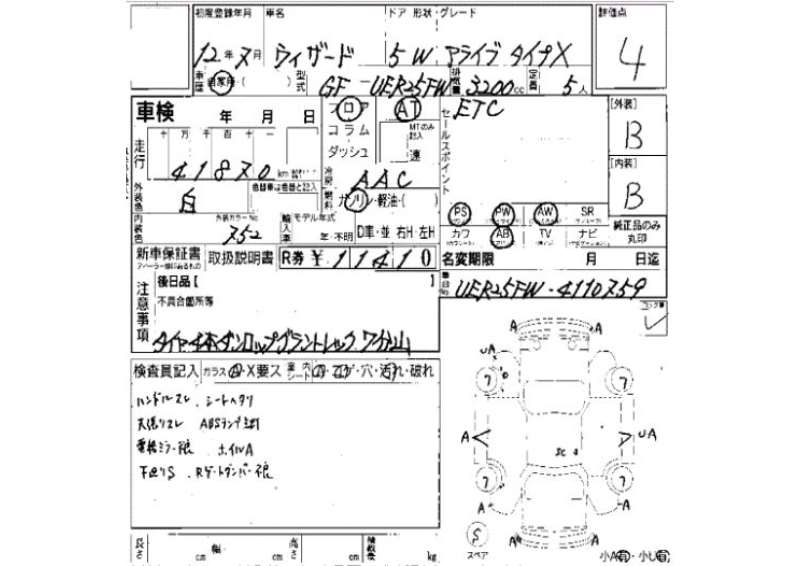 初度登録年月 車名 ドア 形状・グレード 評価点
12年7月 ウィザード 5W アライブ タイプX 4
車歴 自家用・( ) 型式 GF-UER25FW 排気量 3200cc 定員 5人
車検 年 月 日 フロア AT ETC [外装]
コラム MTのみ記入 セールスポイント B
ダッシュ 速 [内装]
走行 十万千百十一 B
41870 km 冷房 AAC
外装色 白 燃料 ガソリン・軽油・( ) PS PW AW SR 純正品のみ丸印
内装色 外装カラーNo. 752 輸入車 モデル年式 年・不明 D車・並 右H・左H カワ AB TV ナビ
新車保証書 取扱説明書 R券 ¥11410 名変期限 月 日迄
後日品[ ] 車台No. UER25FW-4110759
注意事項 不具合箇所等
タイヤ4本ダンロップグラントレック
検査員記入 ガラス A・X要ス 室内シート コゲ・穴・汚れ・破れ
ハンドルスレ シートヘタリ
天張リスレ ABSランプ
電格ミラー不良
下廻りS Rゲートダンパー不良
A A
UA
7 7
A UA
SC
7 7
A A
S A A
スペア 小A有・小U有
長さ cm 幅 cm 高さ cm 積載量 kg